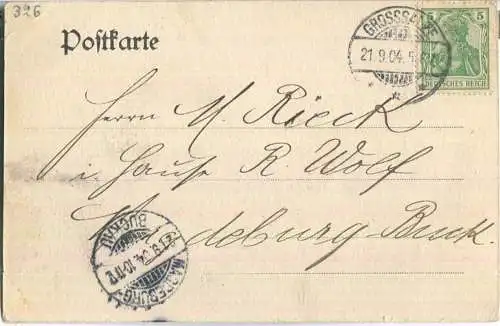 326
Postkarte
GROSSSALZE
21.9.04. 5
5 5
DEUTSCHES REICH
Herrn M. Rieck
i. Hause R. Wolf
Magdeburg-Buck.
MAGDEBURG-
21.9.04. 10-11
BUCKAU